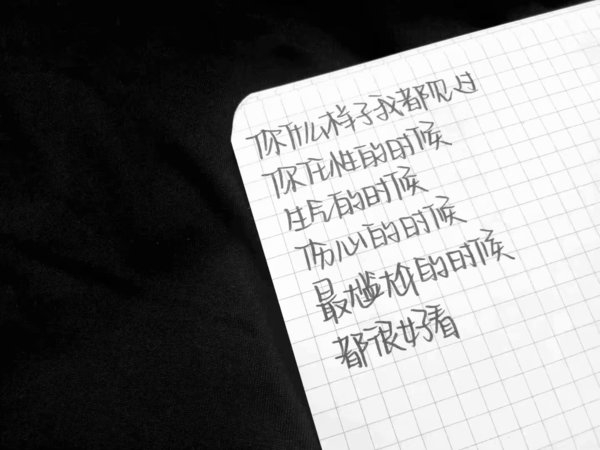 你什么样子我都见过
你任性的时候
生气的时候
伤心的时候
最尴尬的时候
都很好看